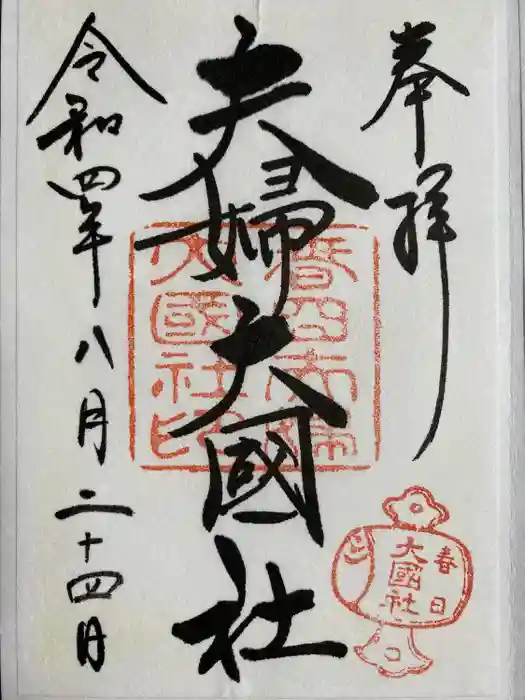 奉拝
夫婦大國社
令和四年八月二十四日
春日夫婦
大國社印
春日
大國社